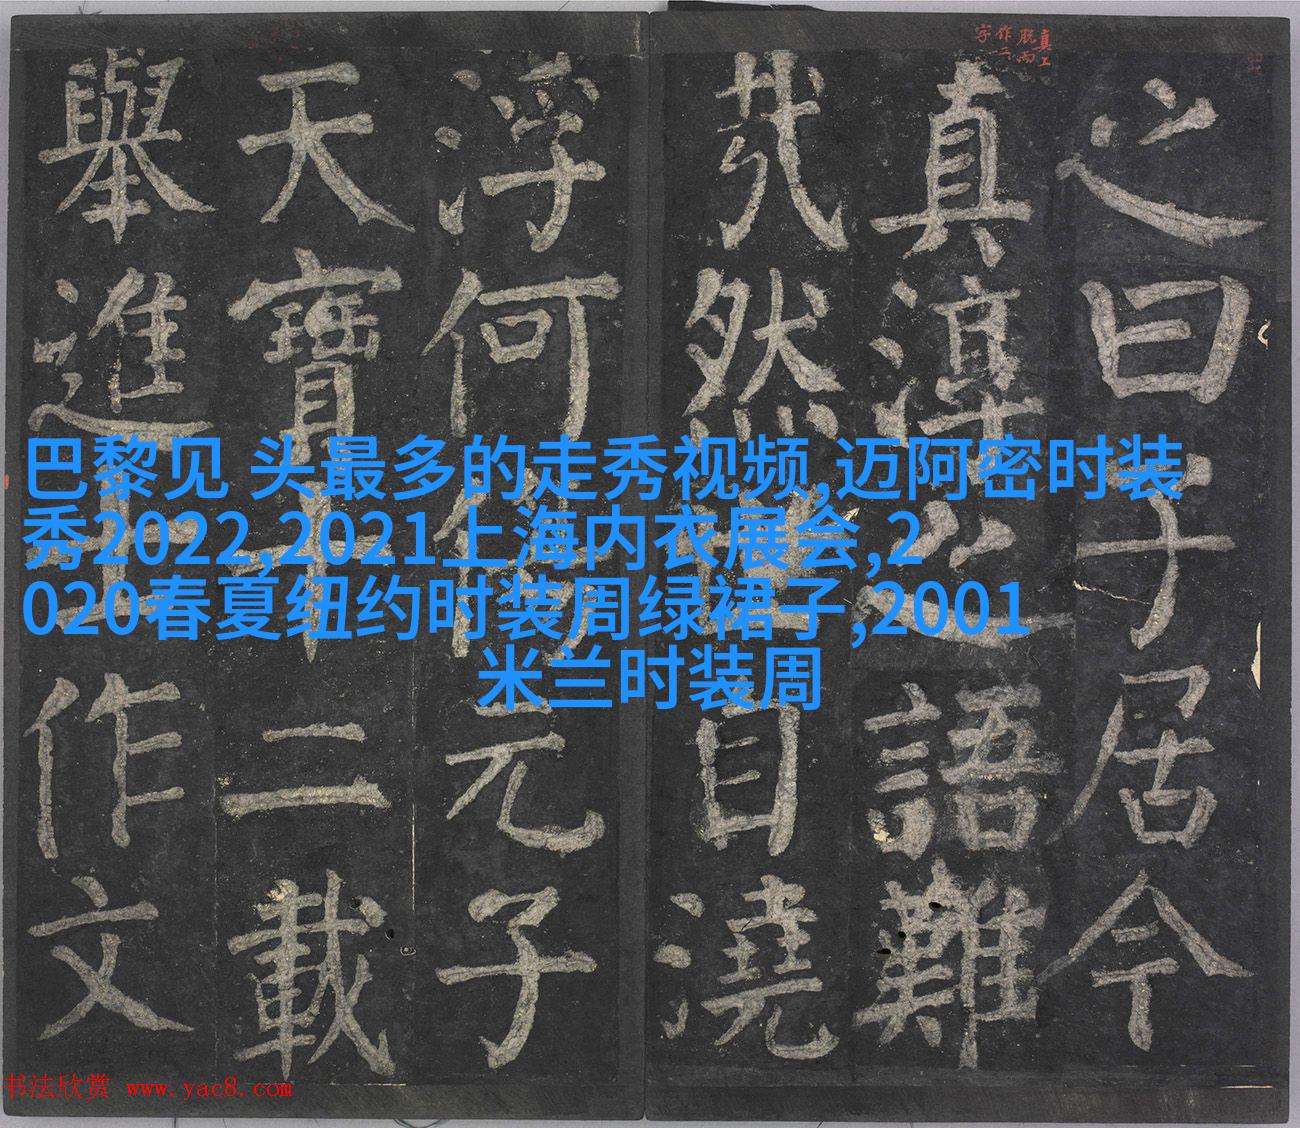 之曰子居今
真淳之語難
㢤然世自澆
浮何傷元子
天寶十二載
舉進士作文
真上
脫而
作二
字
巴黎见 头最多的走秀视频,迈阿密时装
秀2022,2021上海内衣展会,2
020春夏纽约时装周绿裙子,2001
米兰时装周
书法欣赏 www.yac8.com